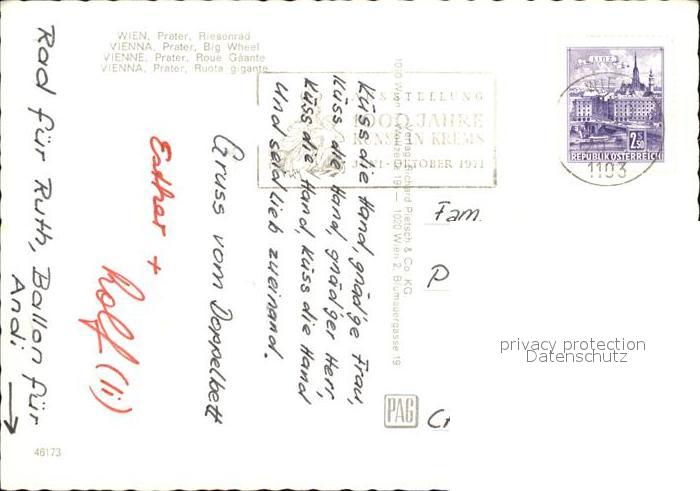 WIEN, Prater, Riesenrad
VIENNA, Prater, Big Wheel
VIENNE, Prater, Roue Géante
VIENNA, Prater, Ruota gigante
Küss die Hand, gnäd'ge Frau,
Küss die Hand, gnädger Herr,
Küss die Hand Küss die Hand
Und seid lieb zueinand.
Gruss vom Doppelbett
Esther +
Rolf (li)
Rad für Ruth, Ballon für
Andi
AUSSTELLUNG
1000 JAHRE
KUNST IN KREMS
JUNI-OKTOBER 1971
Verlag Richard Pietsch & Co. KG
1020 Wien 2, Blumauergasse 19
LINZ
2.50
REPUBLIK ÖSTERREICH
1103
Fam.
P
privacy protection
Datenschutz
PAG
CH
46173